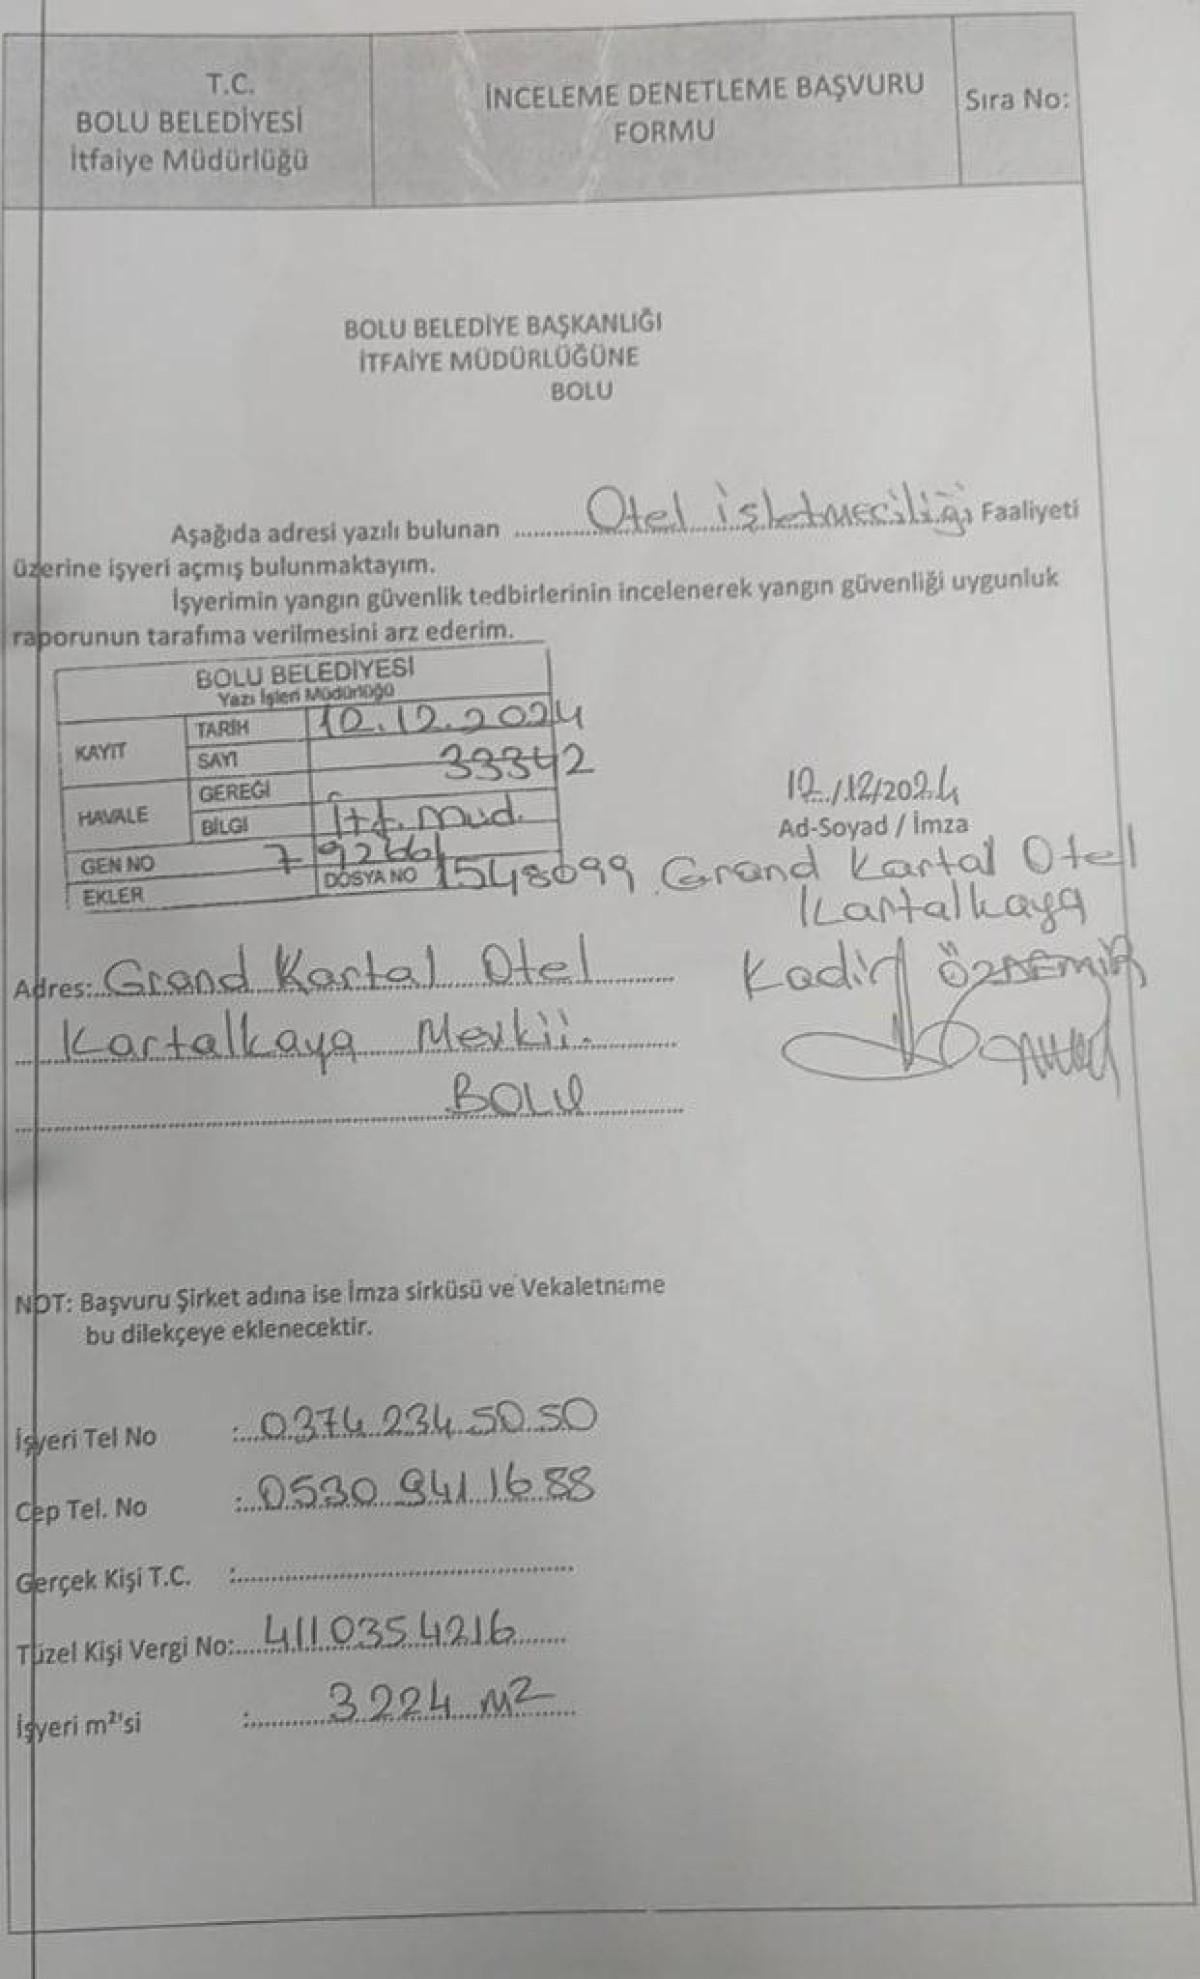 T.C.
BOLU BELEDİYESİ
İtfaiye Müdürlüğü
İNCELEME DENETLEME BAŞVURU
FORMU
Sıra No:
BOLU BELEDİYE BAŞKANLIĞI
İTFAİYE MÜDÜRLÜĞÜNE
BOLU
Aşağıda adresi yazılı bulunan Otel işletmeciliği Faaliyeti
üzerine işyeri açmış bulunmaktayım.
İşyerimin yangın güvenlik tedbirlerinin incelenerek yangın güvenliği uygunluk
raporunun tarafıma verilmesini arz ederim.
BOLU BELEDİYESİ
Yazı İşleri Müdürlüğü
KAYIT TARİH 12.12.2024
SAYI 33342
HAVALE GEREĞİ
BİLGİ İtf. Müd.
GEN NO
DOSYA NO 1548699
EKLER
12/12/2024
Ad-Soyad / İmza
Grand Kartal Otel
Kartalkaya
Kadir
Adres: Grand Kartal Otel
Kartalkaya Mevkii.
BOLU
NOT: Başvuru Şirket adına ise İmza sirküsü ve Vekaletname
bu dilekçeye eklenecektir.
İşyeri Tel No : 0374 234 50 50
Cep Tel. No : 0530 941 16 88
Gerçek Kişi T.C. :
Tüzel Kişi Vergi No: 4110354216
İşyeri m²'si : 3224 m2